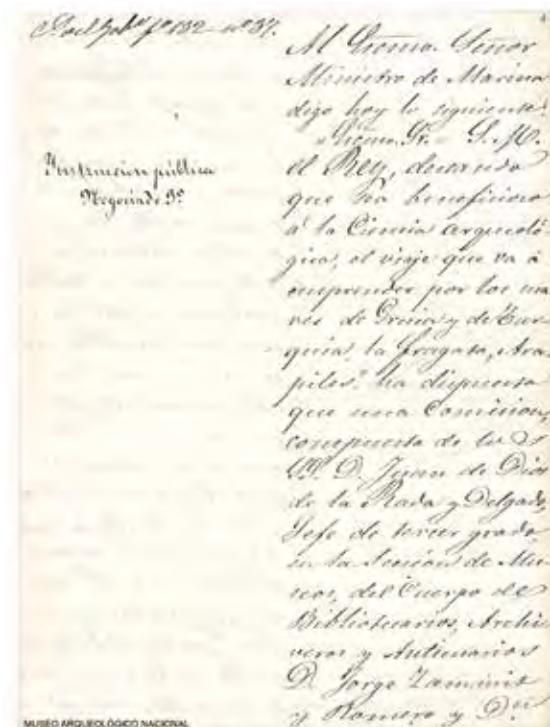 fº 132 nº 37.
Instruccion pública
Negociado 3º
Al Excmo. Señor
Ministro de Marina
digo hoy lo siguiente:
"Excmo. Sr. = S. M.
el Rey, deseando
que sea beneficioso
á la Ciencia arqueoló-
gica, el viaje que va á
emprender por los ma-
res de Grecia y de Tur-
quia, la fragata, Ara-
piles" ha dispuesto
que una Comision,
compuesta de los
D. Juan de Dios
de la Rada y Delgado,
Jefe de tercer grado
en la Seccion de Mu-
seos, del Cuerpo de
Bibliotecarios, Archi-
veros y Anticuarios
D. Jorge Zammit
y Romero y Don
MUSEO ARQUEOLÓGICO NACIONAL